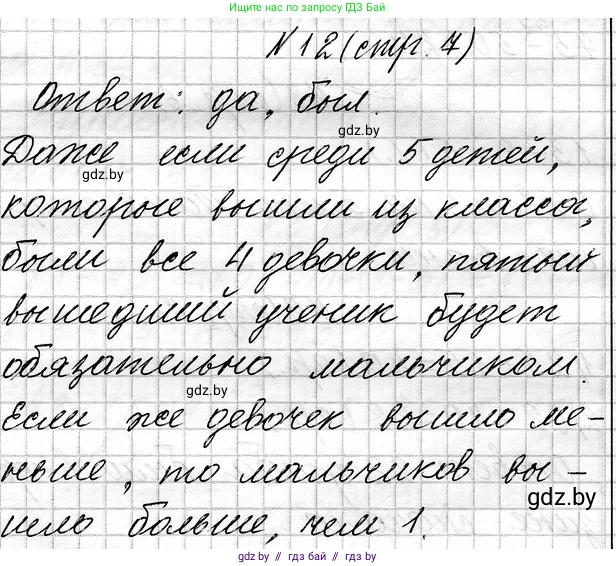 Ищите нас в интернете по запросу ГДЗ БАЙ
N 12 (стр. 7)
Ответ: да, был.
gdz.by
Даже если среди 5 детей,
gdz.by
которые вышли из класса,
были все 4 девочки, пятый
вышедший ученик будет
обязательно мальчиком.
gdz.by
Если же девочек вышло ме-
ньше, то мальчиков вы-
gdz.by
шло больше, чем 1.
gdz.by // гдз бай // гдз.бу